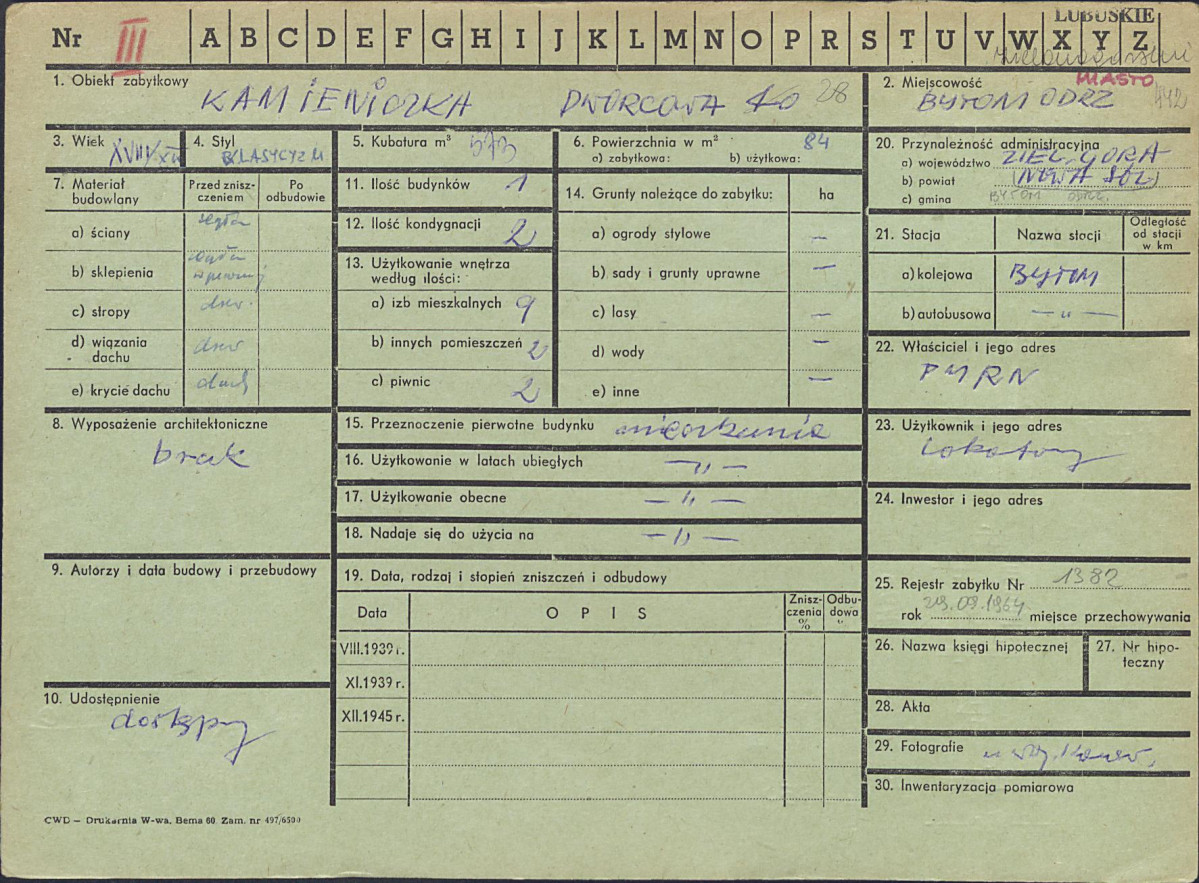 LUBUSKIE
Nr III A B C D E F G H I J K L M N O P R S T U V W X Y Z
1. Obiekt zabytkowy
KAMIENICZKA DWORCOWA 28
2. Miejscowość MIASTO
BYTOM ODRZ
3. Wiek XVIII/XIX
4. Styl KLASYCYZM
5. Kubatura m³ 573
6. Powierzchnia w m² 84
a) zabytkowa: b) użytkowa:
20. Przynależność administracyjna
a) województwo ZIEL. GÓRA
b) powiat (NOWA SÓL)
c) gmina BYTOM ODRZ.
7. Materiał budowlany
Przed znisz-
czeniem
Po
odbudowie
a) ściany cegła
b) sklepienia
c) stropy drew.
d) wiązania
dachu drew
e) krycie dachu dach
11. Ilość budynków 1
12. Ilość kondygnacji 2
13. Użytkowanie wnętrza
według ilości:
a) izb mieszkalnych 9
b) innych pomieszczeń 2
c) piwnic 2
14. Grunty należące do zabytku: ha
a) ogrody stylowe —
b) sady i grunty uprawne —
c) lasy —
d) wody —
e) inne —
21. Stacja
Nazwa stacji
Odległość
od stacji
w km
a) kolejowa BYTOM
b) autobusowa — „ —
22. Właściciel i jego adres
PMRN
8. Wyposażenie architektoniczne
brak
15. Przeznoczenie pierwotne budynku mieszkanie
16. Użytkowanie w latach ubiegłych — „ —
17. Użytkowanie obecne — „ —
18. Nadaje się do użycia na — „ —
23. Użytkownik i jego adres
Lokatorzy
24. Inwestor i jego adres
9. Autorzy i data budowy i przebudowy
19. Data, rodzaj i stopień zniszczeń i odbudowy
Data
O P I S
Znisz-
czenia
%
Odbu-
dowa
"
VIII.1939 r.
XI.1939 r.
XII.1945 r.
25. Rejestr zabytku Nr 1382
rok 29.09.1964 miejsce przechowywania
26. Nazwa księgi hipotecznej
27. Nr hipo-
teczny
10. Udostępnienie
dostępny
28. Akta
29. Fotografie
30. Inwentaryzacja pomiarowa
CWD — Drukarnia W-wa, Bema 60. Zam. nr 497/6500